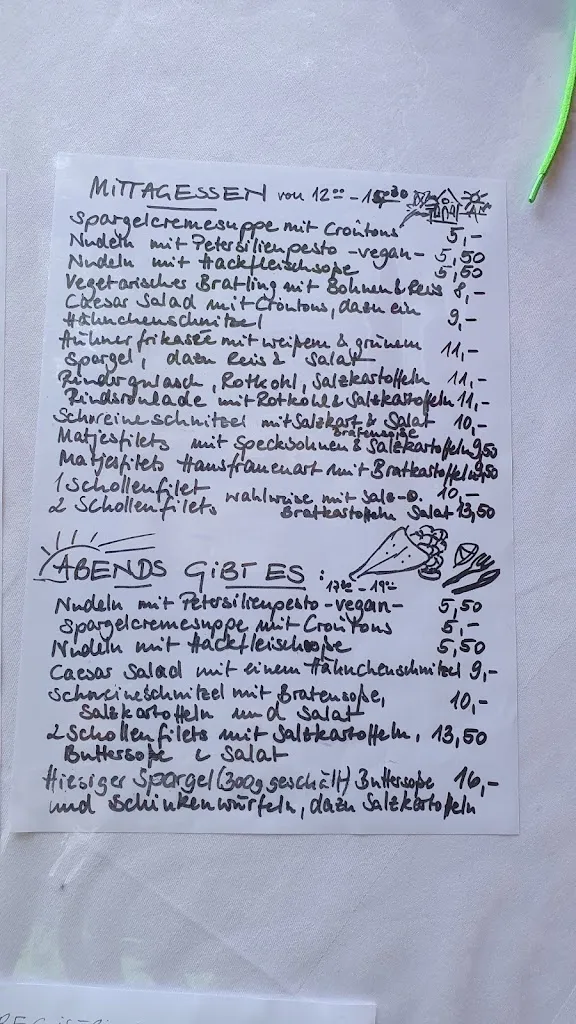 MITTAGESSEN von 12⁰⁰ - 15³⁰
Spargelcremesuppe mit Croûtons 5,-
Nudeln mit Petersilienpesto -vegan- 5,50
Nudeln mit Hackfleischsoße 5,50
Vegetarisches Bratling mit Bohnen & Reis 8,-
Caesar Salad mit Croûtons, dazu ein
Hähnchenschnitzel 9,-
Hühnerfrikassée mit weißem & grünem
Spargel, dazu Reis & Salat 11,-
Rindergulasch, Rotkohl, Salzkartoffeln 11,-
Rindsroulade mit Rotkohl & Salzkartoffeln 11,-
Schweineschnitzel mit Salzkart & Salat 10,-
Bratensoße
Matjesfilets mit Speckbohnen & Salzkartoffeln 9,50
Matjesfilets Hausfrauenart mit Bratkartoffeln 9,50
1 Schollenfilet 10,-
wahlweise mit Salz-o.
2 Schollenfilets Bratkartoffeln Salat 13,50
ABENDS GIBT ES :
17⁰⁰ - 19⁰⁰
Nudeln mit Petersilienpesto -vegan- 5,50
Spargelcremesuppe mit Croûtons 5,-
Nudeln mit Hackfleischsoße 5,50
Caesar Salad mit einem Hähnchenschnitzel 9,-
Schweineschnitzel mit Bratensoße, 10,-
Salzkartoffeln und Salat
2 Schollenfilets mit Salzkartoffeln, 13,50
Buttersoße & Salat
Hiesiger Spargel (300g geschält) Buttersoße 16,-
und Schinkenwürfeln, dazu Salzkartoffeln